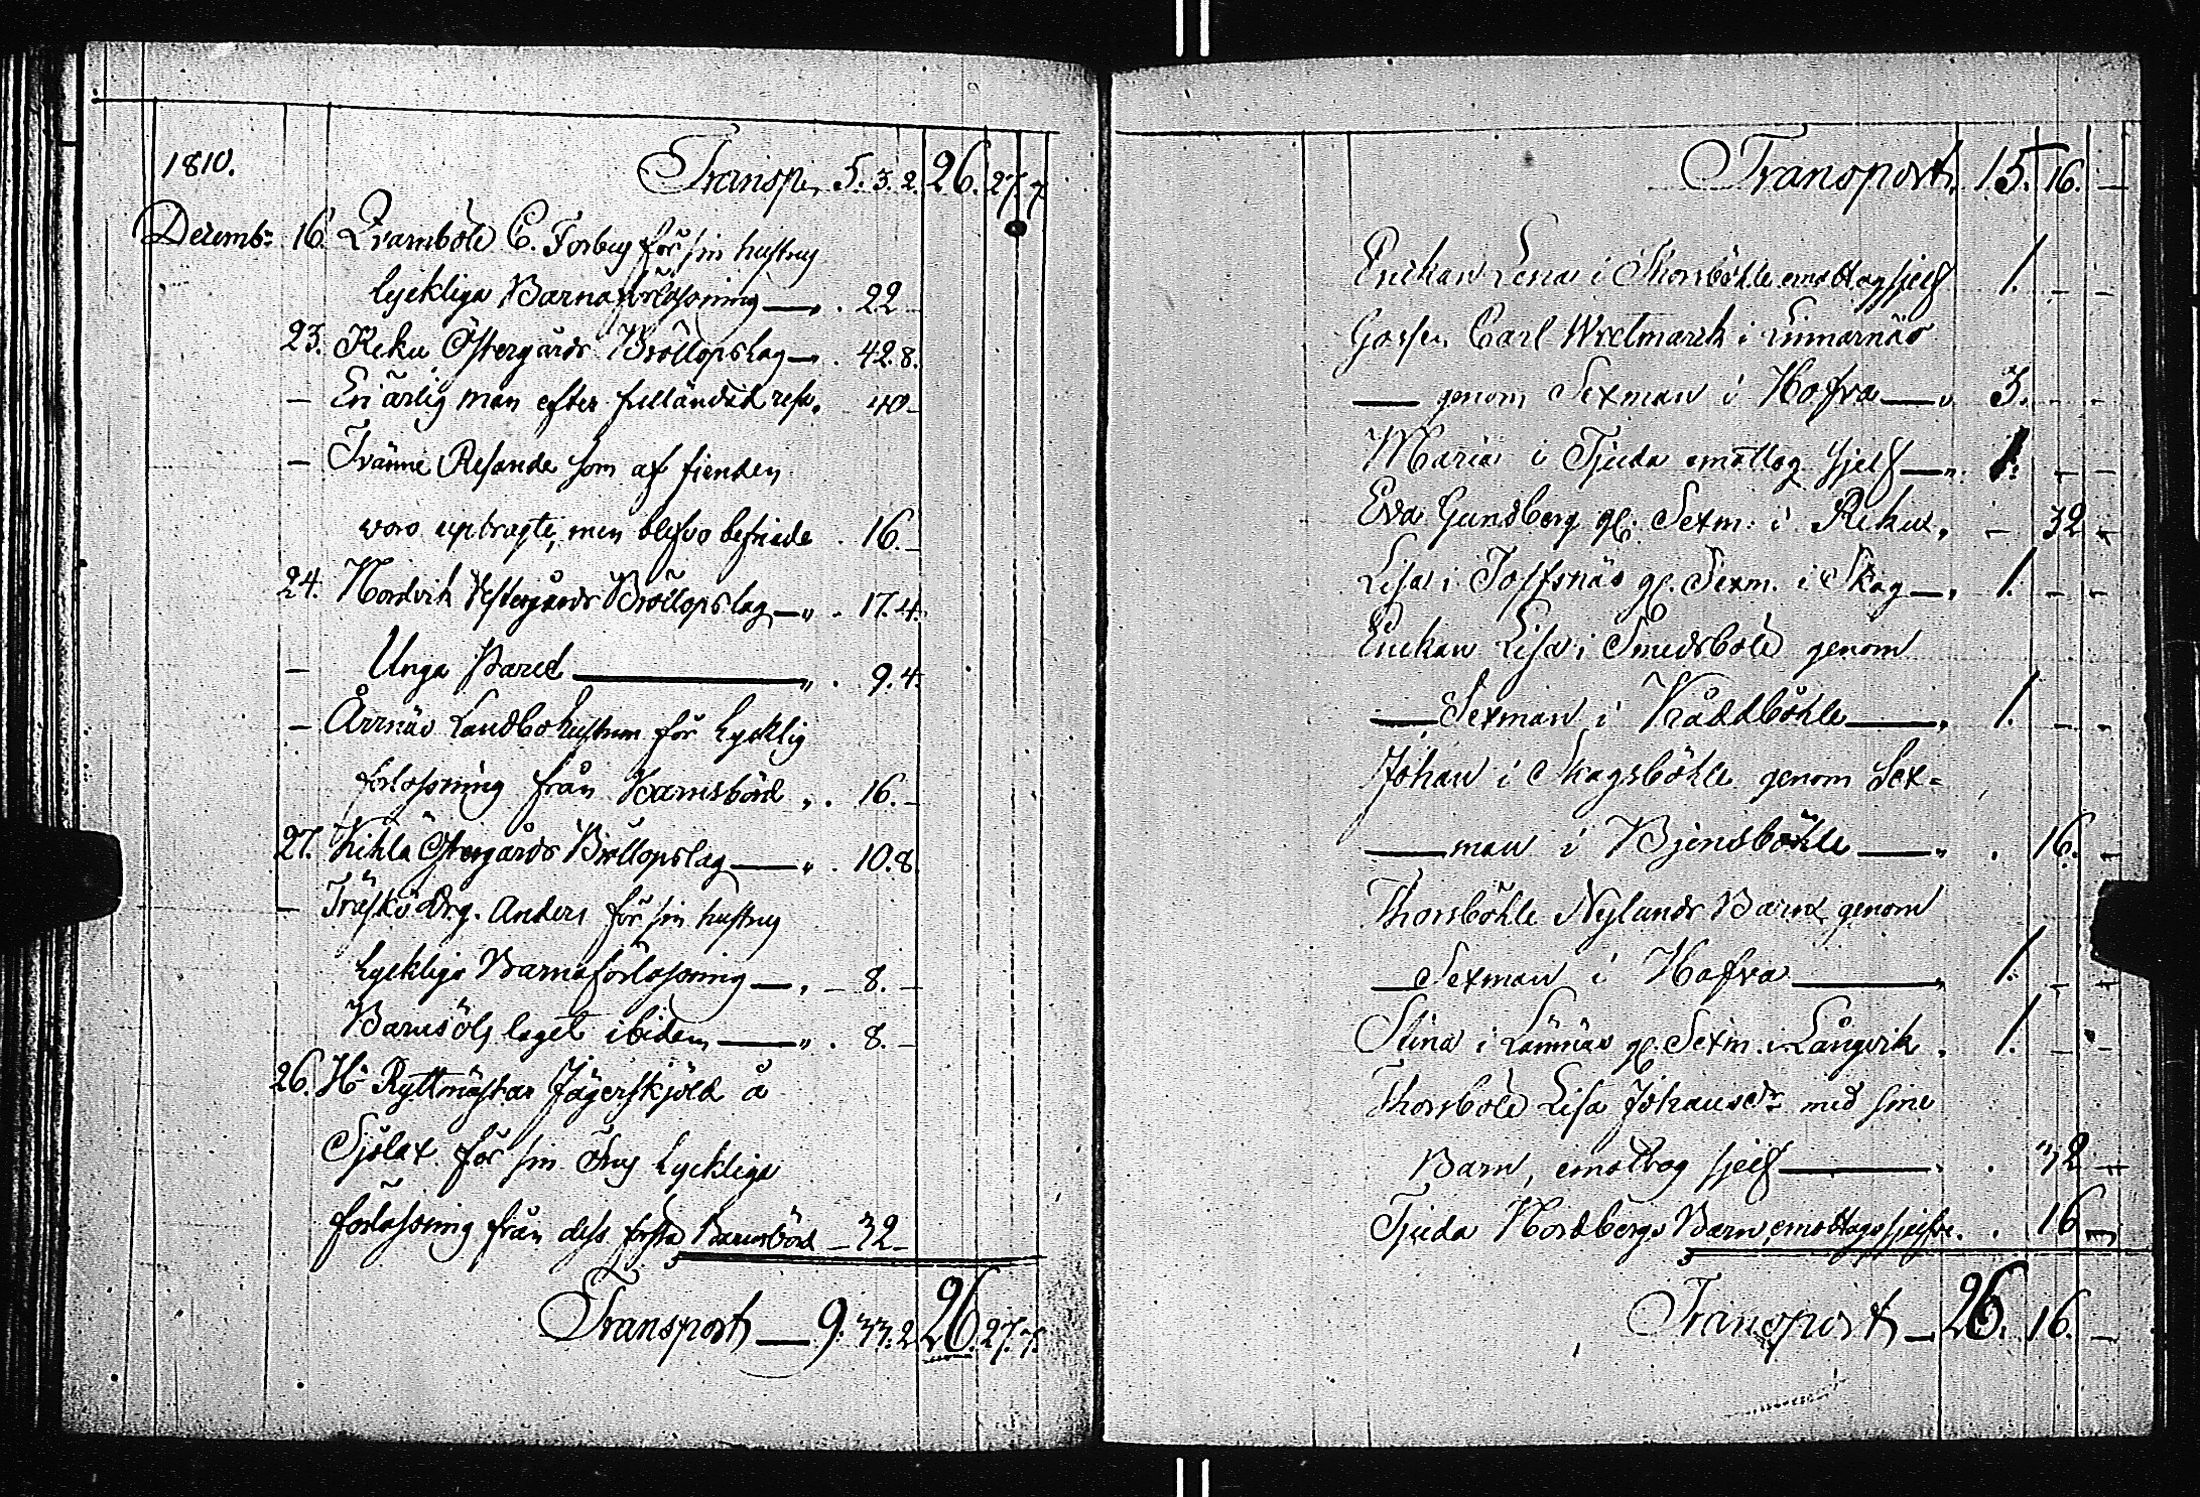 1810. Transp. 5. 3. 2. 26. 27. 7
Decemb: 16. Qvarnböle C. Forberg för sin hustrus
lyckliga Barnaförlossning — 22 –
23. Reku Östergårds Bröllopslag — 42. 8.
– En ärlig man efter fulländad resa. 40 –
– Tvänne Resande som af fienden
voro uptragte, men blefvo befriade . 16. –
24. Nordvik Vestergårds Bröllopslag — 17. 4.
– Unga Paret — 9. 4.
– Årrnäs Landbohustrun för lycklig
förlossning från Barnsbörd „ . 16. –
27. Kihla Östergårds Bröllopslag — 10. 8.
– Träskö Drg. Anders för sin hustrus
lyckliga Barnaförlossning — 8. –
Barnsöls laget ibidem — 8. –
26. Hr Ryttmästar Jägerskjöld å
Sjölax för sin Frus lyckliga
förlossning från dess första Barnsbörd – 32 –
Transport — 9. 33. 2 26. 27. 7.
Transport 15. 16. –
Enckan Lena i Thorsböhle emottog sjelf 1. – –
Gossen Carl Wretmarck i Linnarnäs
— genom Sexman i Hofva — 3. – –
Maria i Tjuda emottog sjelf — 1. – –
Eva Gundberg gl. Sexm. i Reku. – 32 –
Lisa i Tolfsnäs gl. Sexm. i Skog — 1. – –
Enckan Lisa i Smedsböle genom
— Sexman i Kråddböhle — 1. – –
Johan i Skagsböhle genom Sex=
— man i Bjensböhle — . 16. –
Thorsböhle Nylunds Barn genom
— Sexman i Hofva — 1. – –
Stina i Lämnäs gl. Sexm. i Långvik . 1. – –
Thorsböle Lisa Johansdr med sine
Barn, emottog sjelf — . 32 –
Tjuda Nordbergs Barn emottogo sjelfve. . 16 –
Transport — 26. 16. –